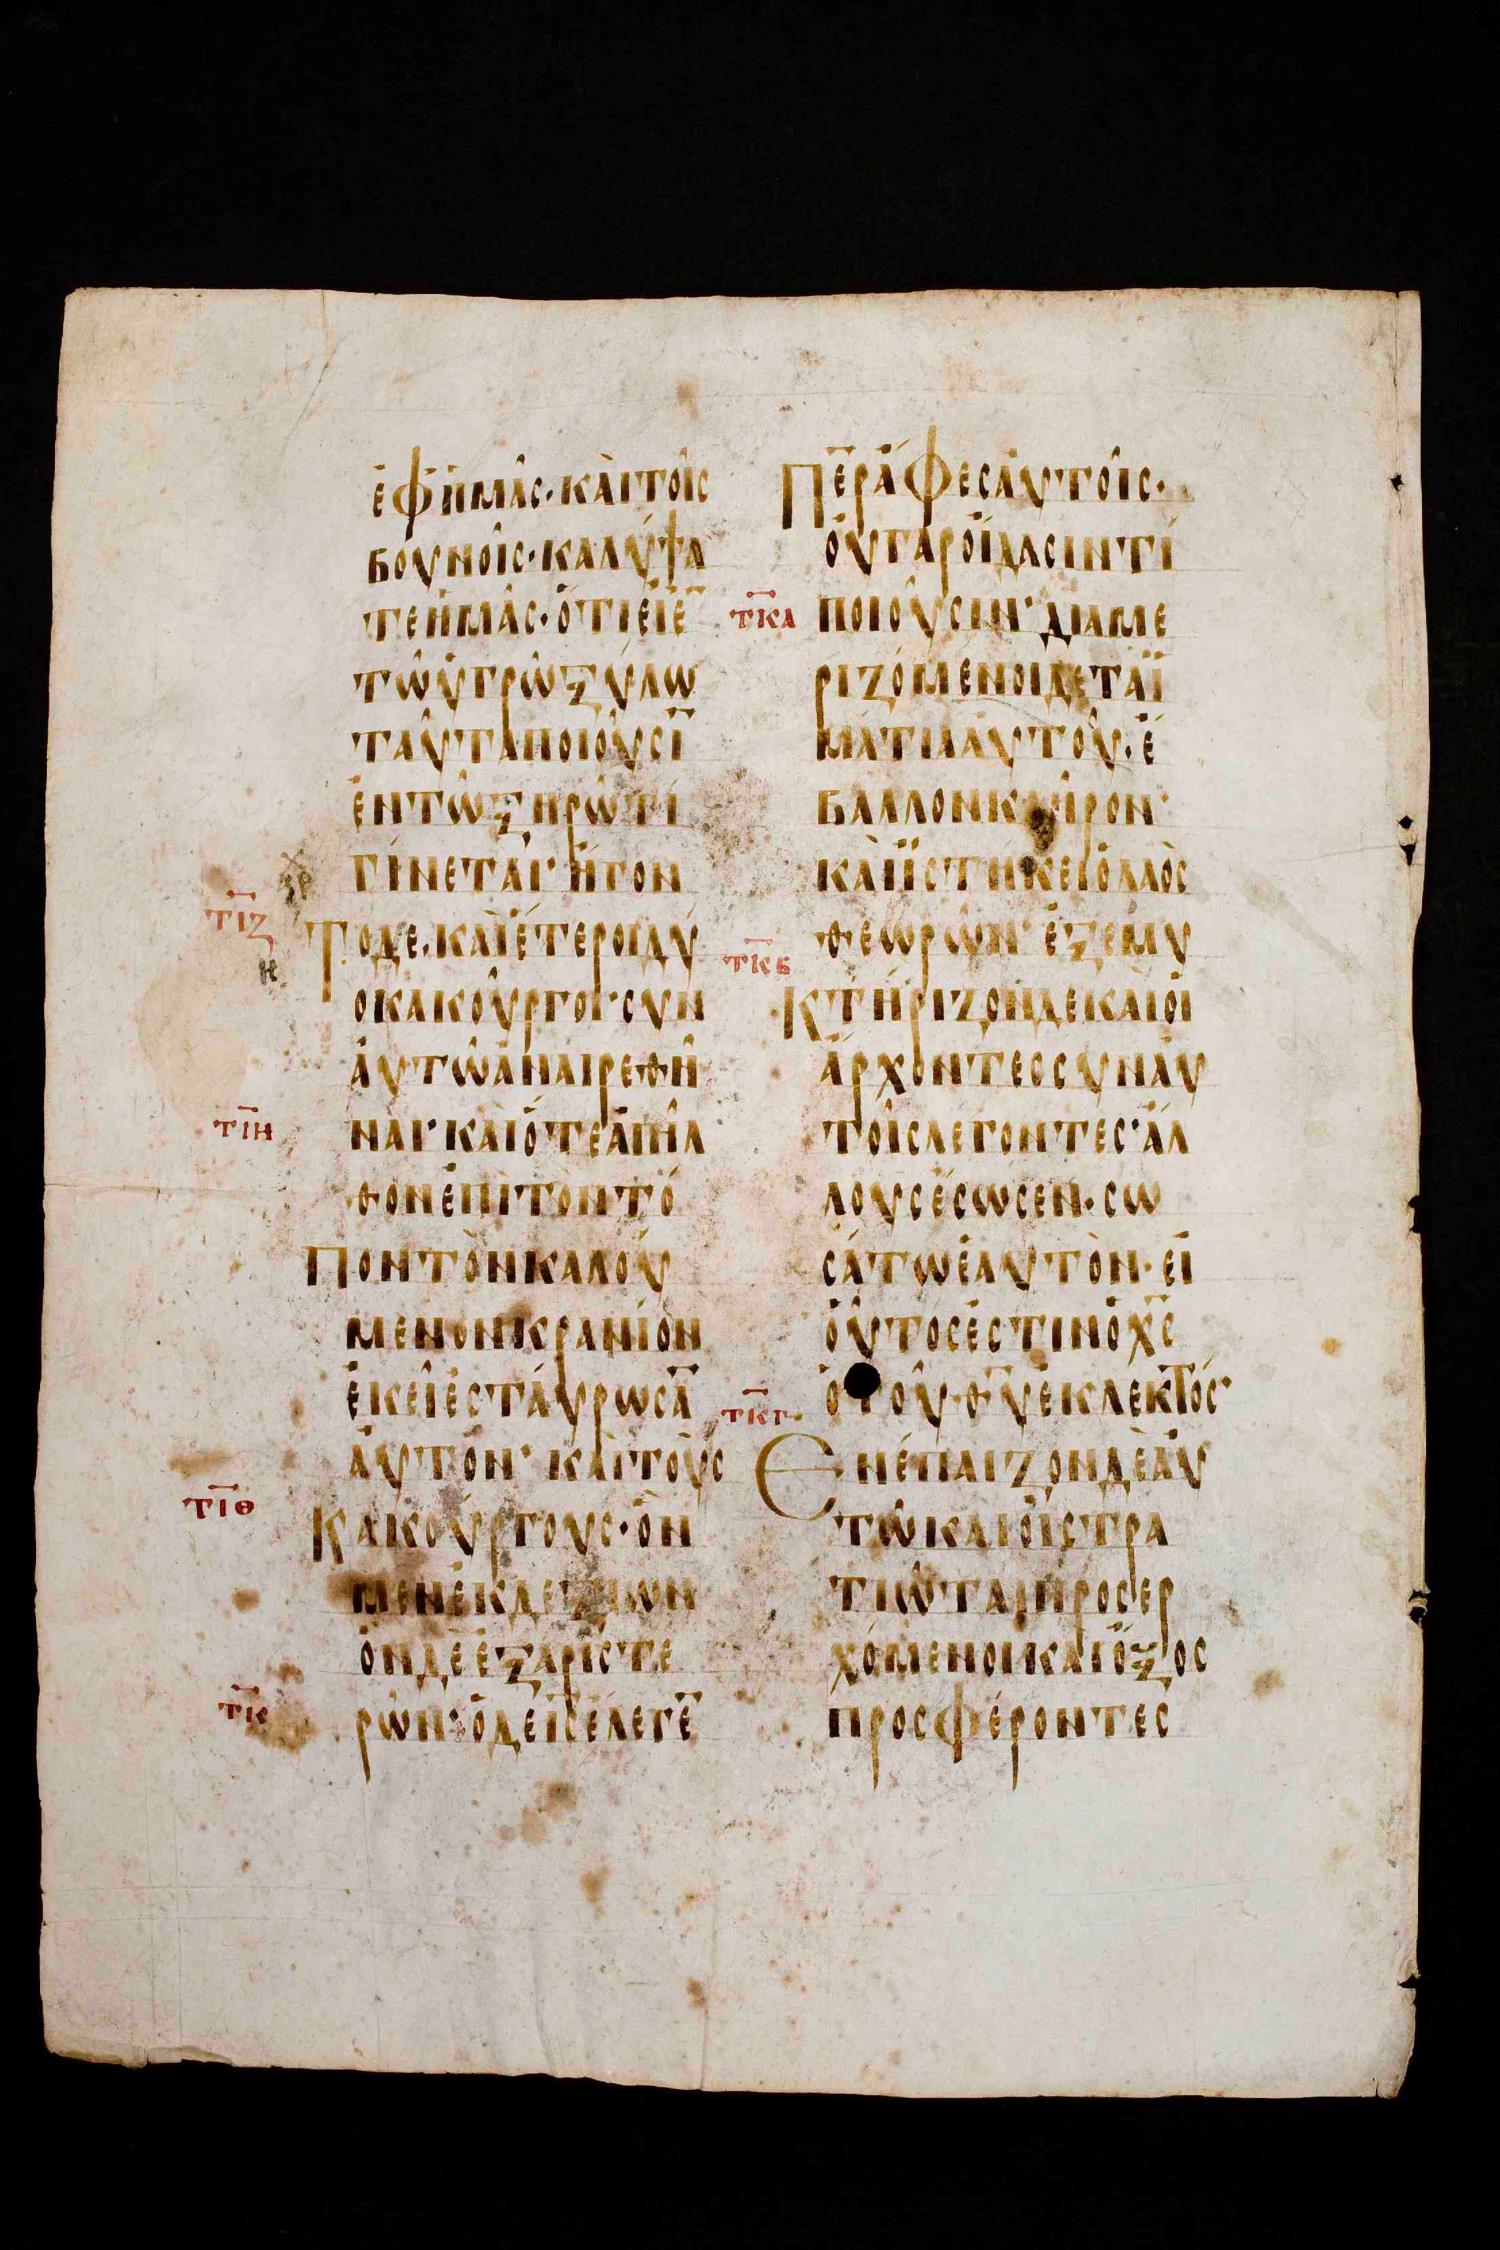 ἐφ ἡμᾶς· καὶ τοῖς
βουνοῖς· καλύψα
τε ἡμᾶς· ὅτι εἰ ἐ̅
τῶ ὑγρῶ ξύλω
ταῦτα ποιοῦσι̅
ἐν τῶ ξηρῶ τί
γίνεται· ἤγον
τιζ
Το δε· καὶ ἕτεροι δύ
ο κακοῦργοι· σὺν
ἀυτῶ ἀναιρεθῆ
τιη
ναι· καὶ ὅτε ἀπῆλ
θον ἐπὶ τὸν τό
Πον τὸν καλού
μενον κρανίον
ἐκεῖ ἐσταύρωσα̅
ἀυτόν· καὶ τοὺς
τιθ
Κακούργους· ὃν
μὲν ἐκ δεξιῶν
ὃν δὲ ἐξ ἀριστε
τκ
ρῶν· ὁ δὲ ι̅ς̅ ἔλεγε̅
Πε̅ρ ἄφες ἀυτοῖς·
οὐ γὰρ οἴδασιν τί
τκα
ποιοῦσιν· διαμε
ριζόμενοι δὲ τὰ ἱ
μάτια ἀυτοῦ· ἔ
βαλλον κλῆρον·
καὶ ἱστήκει ὁ λαὸς
θεωρῶν· ἐξεμυ
τκβ
Κτήριζον δὲ καὶ οἱ
ἄρχοντες σὺν ἀυ
τοῖς λέγοντες· ἄλ
λους ἔσωσεν· σω
σάτω ἑαυτὸν· εἰ
οὗτός ἐστιν ὁ χ̅ς̅
ὁ τοῦ θ̅υ̅ ἐκλεκτός·
τκγ
Ἐνέπαιζον δὲ ἀυ
τῶ καὶ οἱ στρα
τιῶται προσερ
χόμενοι καὶ ὄξος
προσφέροντες